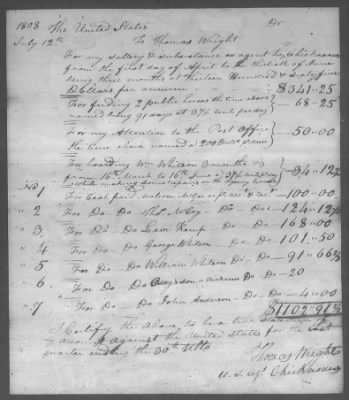 1808 The United States Dr
July 12th To Thomas Wright
For my Sallery & Subsistance as agent
from the first day of April to the thirtieth of June
being three months at thirteen Hundred & Sixty five
Dollars per annum $341.25
For feeding 2 public horses the time above
named being 91 days at 37½ cents per day 68.25
For my Attention to the Post Office
the time above named a 200 Dolls per an 50.00
For boarding Wm Watson 3 months viz
from 16th March to 16th June a 37½ cents per
while making some repairs on the Agency 34.12½
No 1 For Cash paid 100.00
" 2 For Do Do Thos McCoy Do Do 124.12½
" 3 For Do Do Levi Kemp Do 168.00
" 4 For Do Do George Watson Do Do 101.50
" 5 For Do Do William Watson Do Do 91.66
" 6 For Do Do Do Do 20
" 7 For Do Do John Anderson Do Do 4.00
$1102.91
I Certify the above to be a true
against the United States for the last
quarter ending the 30th Ulto
Thomas Wright
U.S. Agt Chickasaws